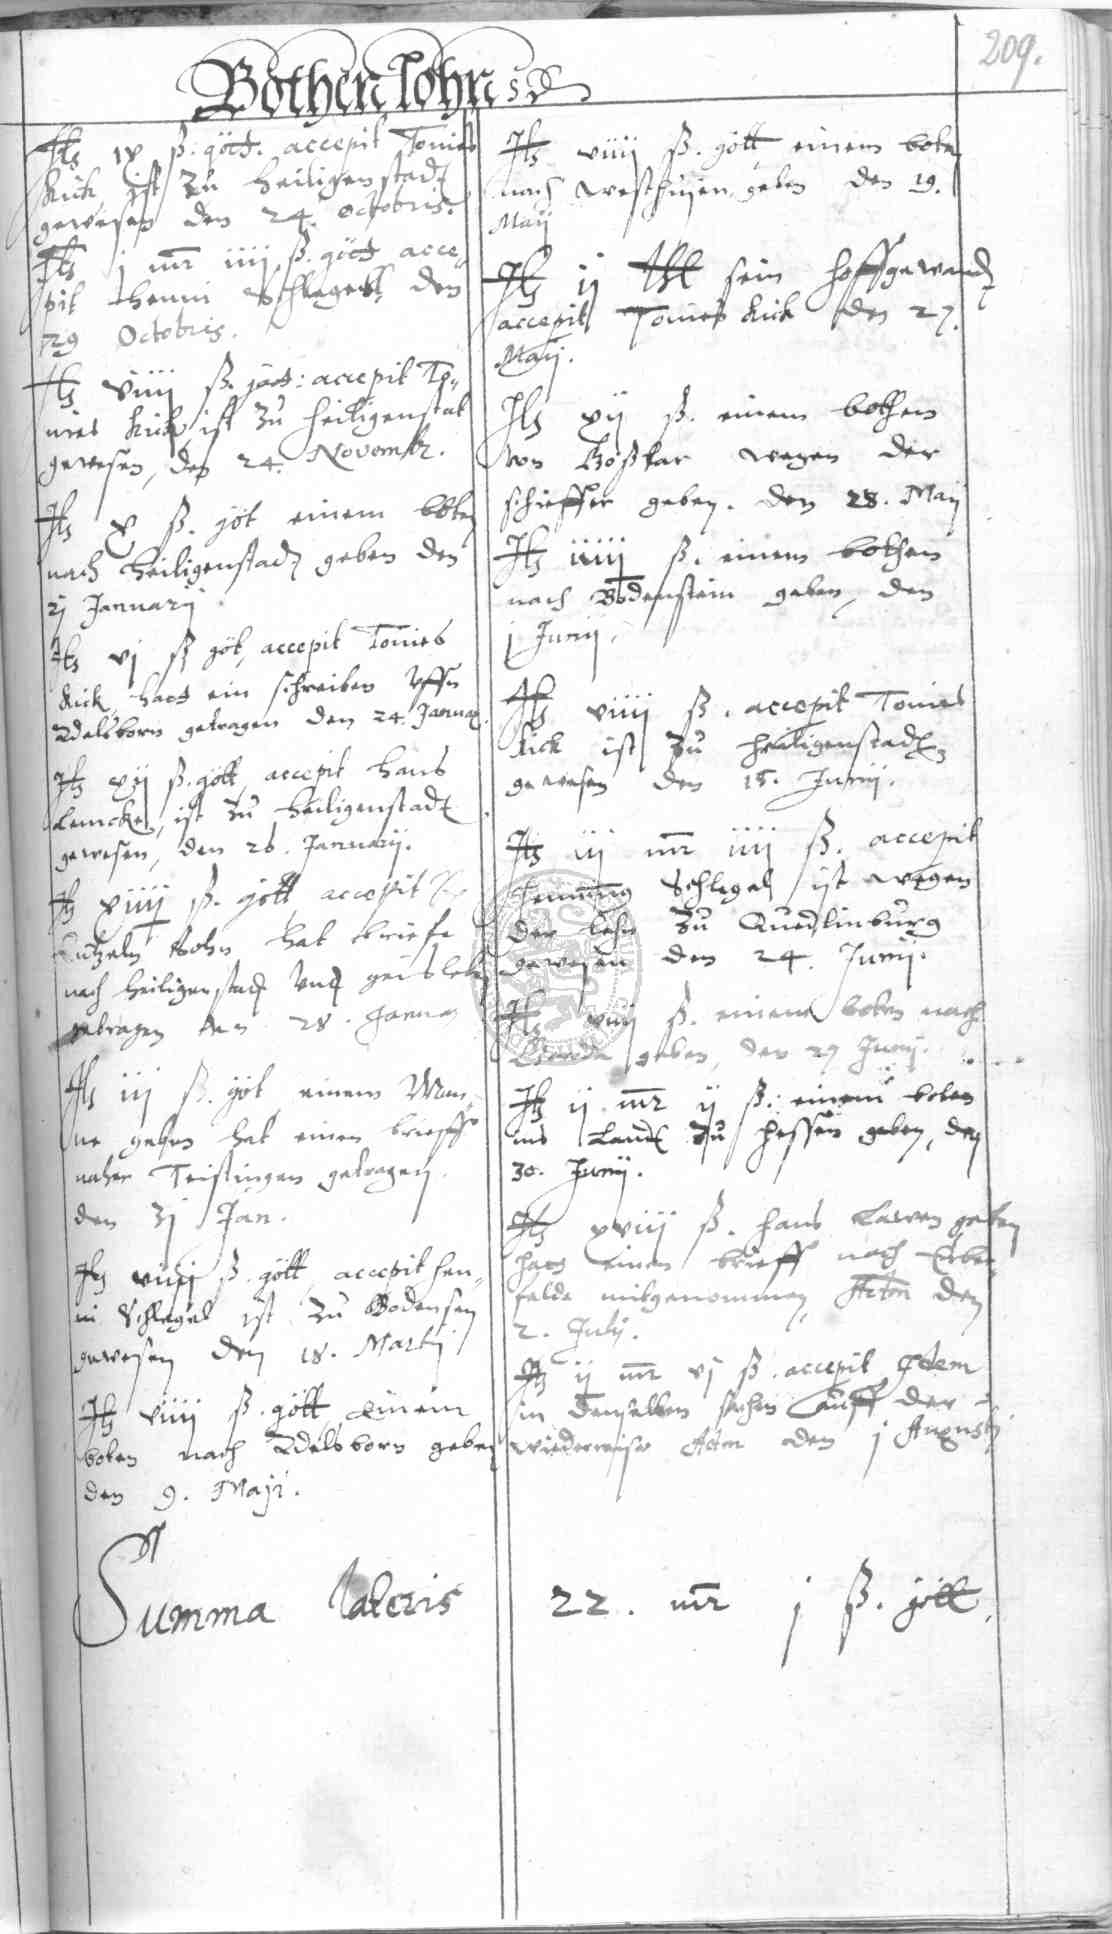 209.
Bothen lohn
Itz ix ß. gött. accepit Tonies
Kick ist zu heiligenstadt
gewesen den 24. Octobris.
Itz j mr iiij ß. gött acce„
pit Henni Schlegell den
29 Octobris.
Itz viiij ß. gött: accepit To„
nies Kick ist zu heiligenstat
gewesen, den 24. Novembr.
Itz x ß. göt einem boten
nach heiligenstadt geben den
2j Januarij
Itz vj ß göt, accepit Tonies
Kick, hatt ein schreiben uffn
Adelsborn getragen den 24. Januar
Itz xij ß. gött, accepit hans
Lemcke, ist zu heiligenstadt
gewesen, den 26. Januarij.
Itz xiiij ß. gött accepit
Sohn hat brieffe
nach heiligenstadt und geisleben
getragen den 28. Januar
Itz iij ß. göt einem Man„
ne geben hat einen brieff
naher Teistingen getragen
den 3j Jan.
Itz viiij ß. gött, accepit Hen„
ni Schlegel ist zu Bodensen
gewesen den 18. Martij
Itz viiij ß. gött, einem
boten nach Adelsborn geben
den 9. Maji.
Itz viiij ß. gött, einem boten
nach Westhusen geben den 19.
Maij
Itz ij thl sein hoffgewandt
accepit Tonies Kick den 27.
Maij.
Itz xij ß. einem bothen
von Goßlar wegen der
schieffer geben. den 28. Maij
Itz iiiij ß. einem bothen
nach Bodenstein geben, den
j Junij.
Itz viiij ß. accepit Tonies
Kick ist zu heiligenstadt
gewesen den 15. Junij.
Itz iij mr iiij ß. accepit
Henning Schlegel ist wegen
der lehn zu Quedlinburg
gewesen den 24. Junij.
Itz viij ß. einem boten nach
geben, den 27 Junij.
Itz ij mr ij ß. einem boten
ins Landt zu hessen geben, den
30. Junij.
Itz xviiij ß. hans Lawen geben
hatt einen brieff nach
felde mitgenommen, Actum den
2. Julij.
Itz ij mr vj ß. accepit Idem
in denselben sachen auff der
wiederreise Actum den j Augusti
Summa lateris 22. mr j ß. gött.